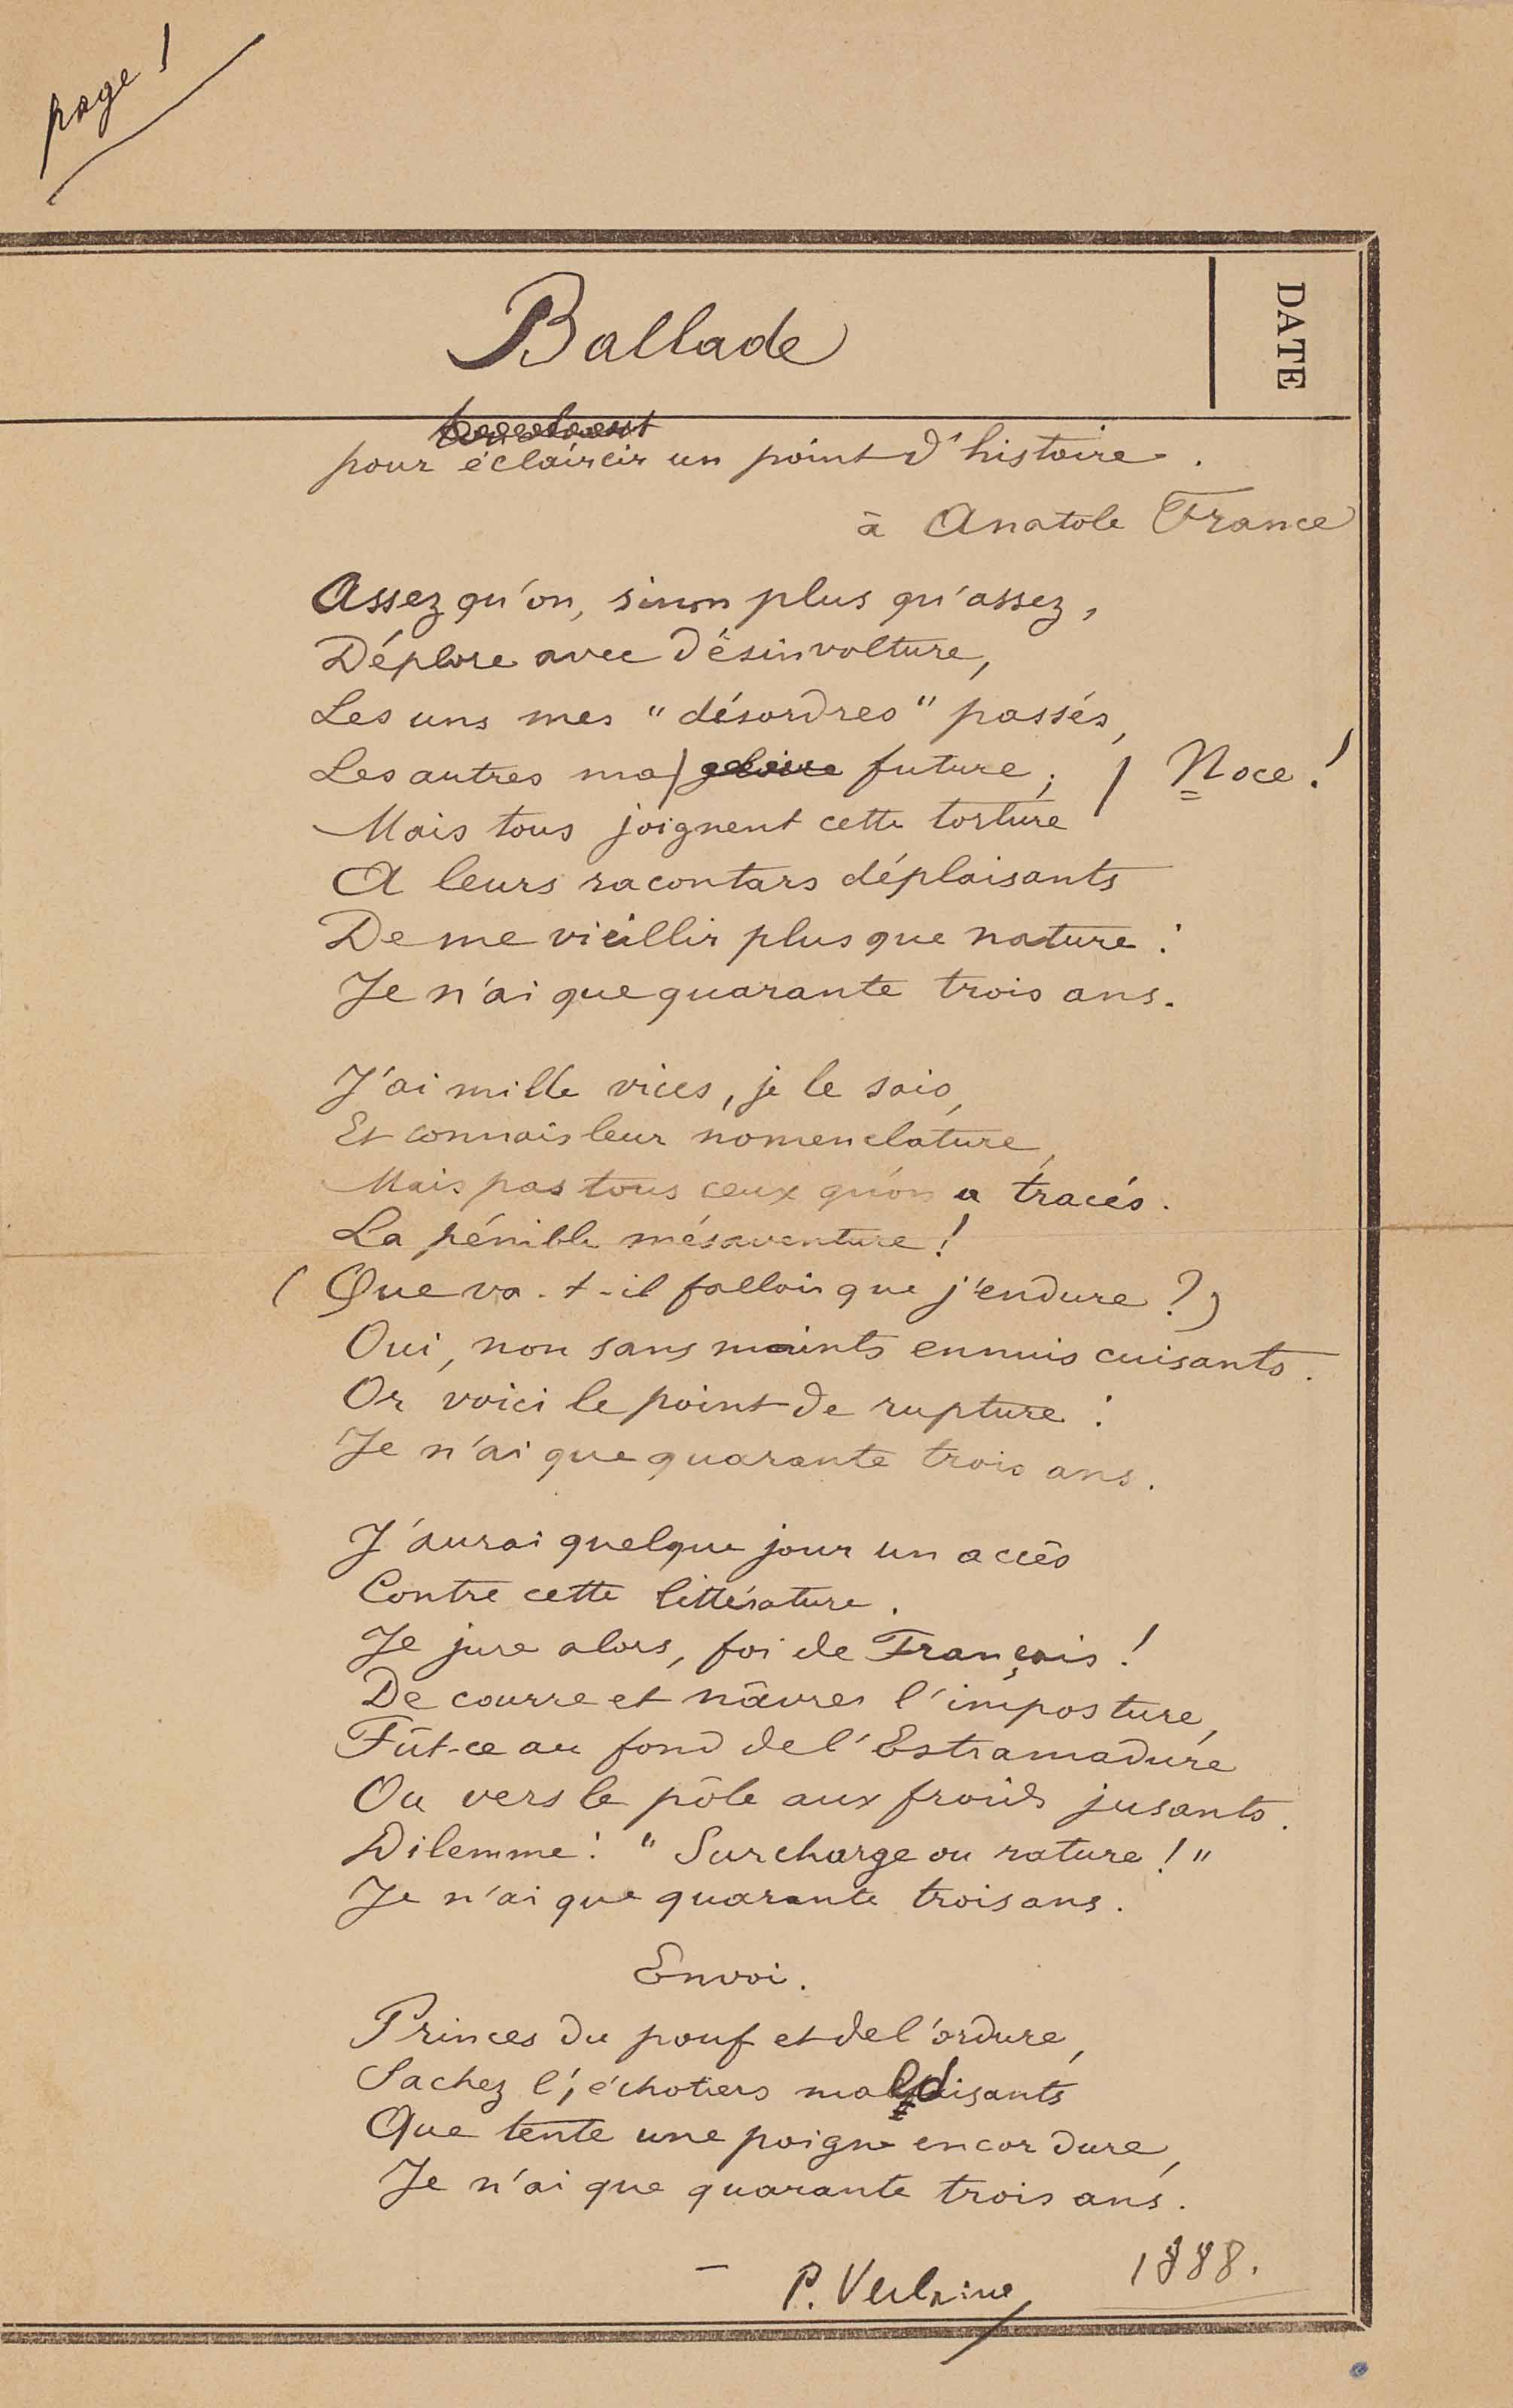 page 1
DATE
Ballade
pour éclaircir un point d'histoire.
à Anatole France
Assez qu'on, sinon plus qu'assez,
Déplore avec désinvolture,
Les uns mes "désordres" passés,
Les autres ma / gloire future; / Noce!
Mais tous joignent cette torture
A leurs racontars déplaisants
De me vieillir plus que nature:
Je n'ai que quarante trois ans.
J'ai mille vices, je le sais,
Et connais leur nomenclature,
Mais pas tous ceux qu'on a tracés.
La pénible mésaventure!
(Que va-t-il falloir que j'endure?)
Oui, non sans maints ennuis cuisants.
Or voici le point de rupture:
Je n'ai que quarante trois ans.
J'aurai quelque jour un accès
Contre cette littérature.
Je jure alors, foi de Français!
De courre et nâvrer l'imposture,
Fût-ce au fond de l'Estramadure
Ou vers le pôle aux froids jusants.
Dilemme: "Surcharge ou rature!"
Je n'ai que quarante trois ans.
Envoi.
Princes du pouf et de l'ordure,
Sachez l', échotiers maldisants
Que tente une poigne encor dure,
Je n'ai que quarante trois ans.
— P. Verlaine 1888.